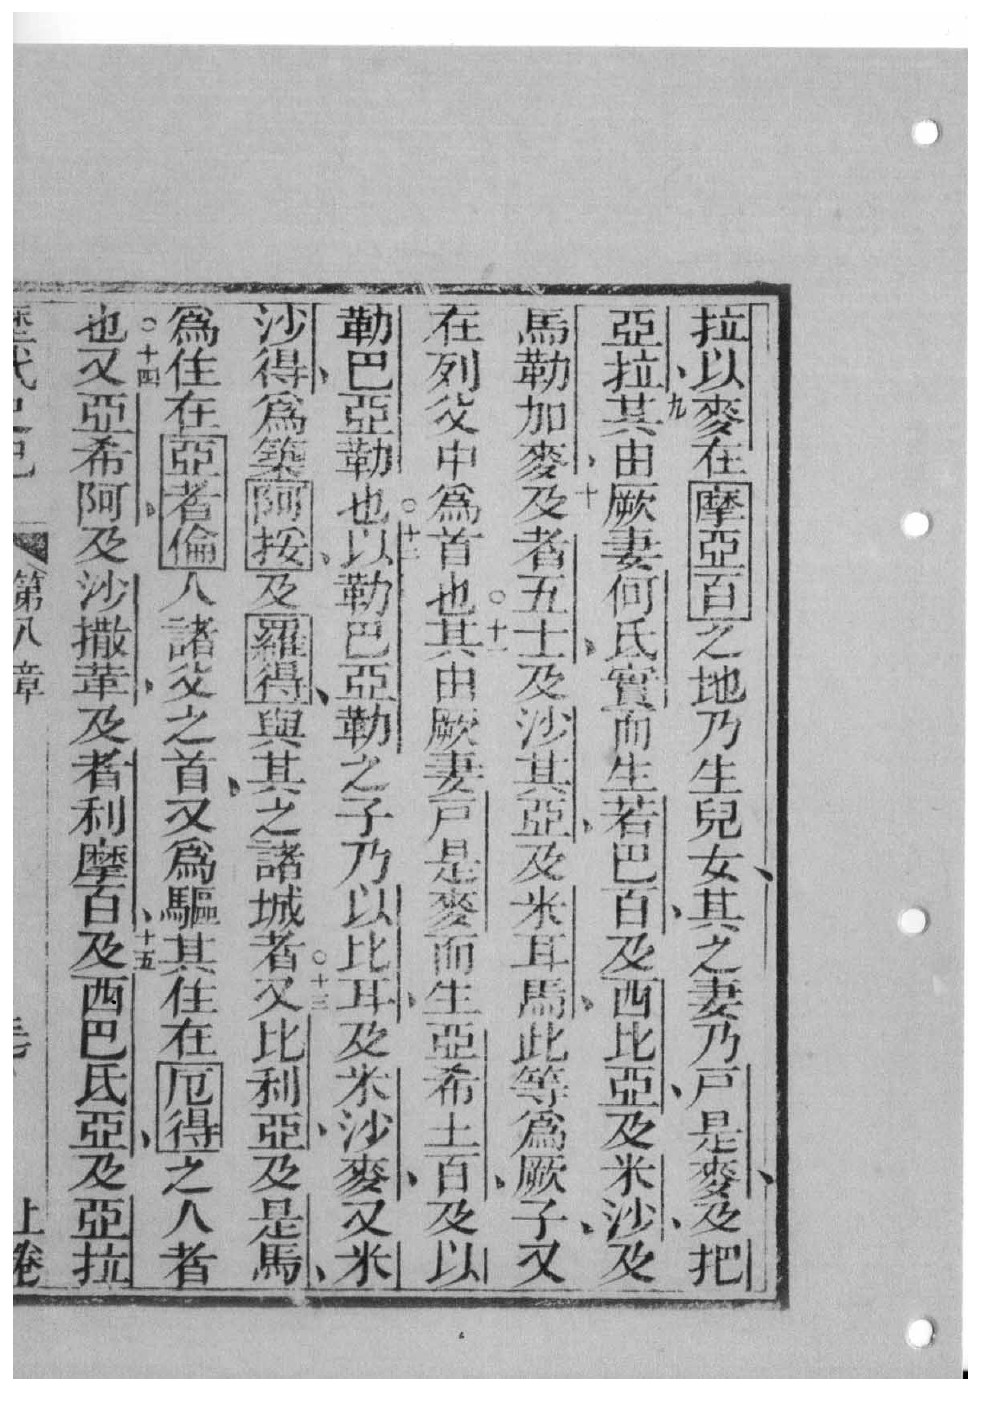 拉以麥在摩亞百之地乃生兒女、其之妻乃戸是麥、及把
亞拉、九其由厥妻何氏實而生若巴百、及西比亞、及米沙、及
馬勒加麥、十及者五士、及沙其亞、及米耳馬、此等爲厥子、又
在列父中爲首也○十一其由厥妻戸是麥而生亞希土百、及以
勒巴亞勒也○十二以勒巴亞勒之子乃以比耳、及米沙麥、又米
沙得、爲築阿按、及羅得、與其之諸城者○十三又比利亞、及是馬、
爲住在亞者倫人諸父之首、又爲驅其住在厄得之人者
也○十四又亞希阿、及沙撒葦、及者利摩百、十五及西巴氏亞、及亞拉
歷代史紀 第八章 上卷